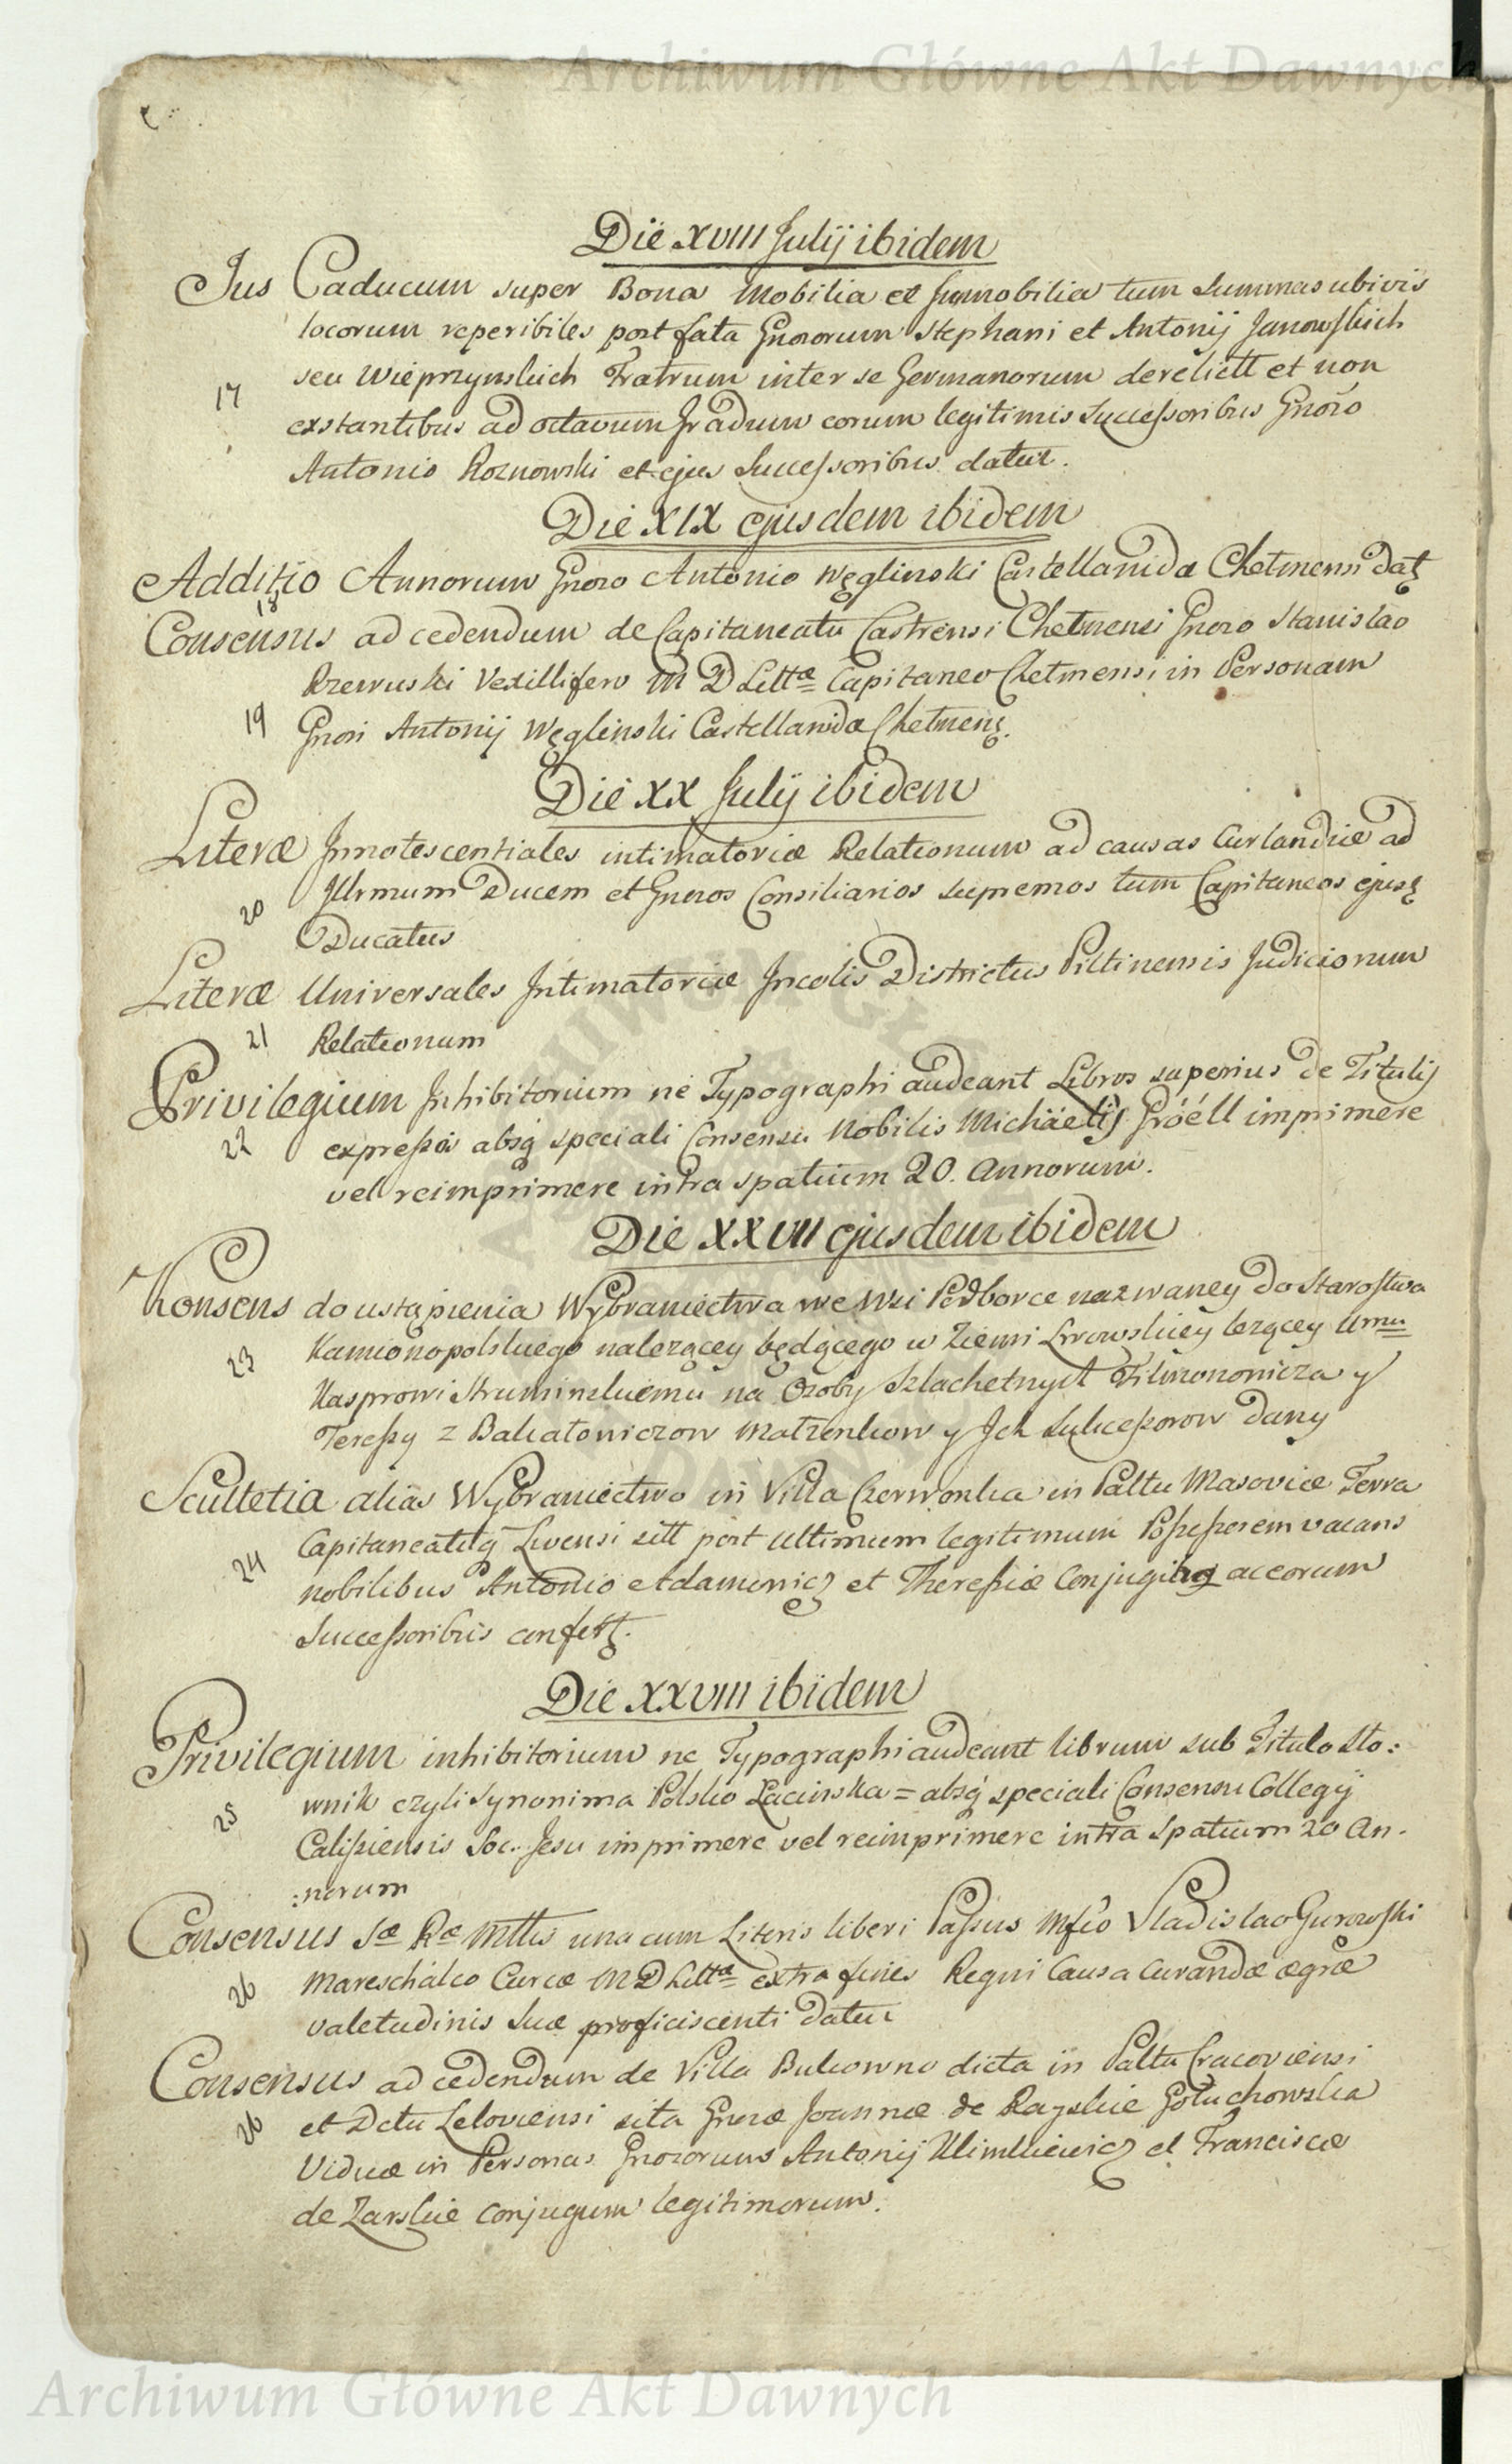 Archiwum Główne Akt Dawnych
Die XVIII Julij ibidem
Jus Caducum super Bona Mobilia et Immobilia tum Summas ubivis
locorum reperibiles post fata Gnrorum Stephani et Antonij Janowskich
seu Wieprzynskich Fratrum inter se Germanorum derelictt et non
17
exstantibus ad octavum Gradum eorum legitimis Successoribus Gnoro
Antonio Roznowski et ejus Successoribus datur.
Die XIX ejusdem ibidem
Additio Annorum Gnoro Antonio Węglinski Castellanidæ Chelmensi dat
18
Consensus ad cedendum de Capitaneatu Castrensi Chelmensi Gnoro Stanislao
Rzewuski Vexillifero M D Littæ Capitaneo Chelmensi in Personam
19 Gnori Antonij Węglinski Castellanidæ Chelmens.
Die XX Julij ibidem
Literæ Innotescentiales intimatoriæ Relationum ad causas Curlandiæ ad
20 Illrmum Ducem et Gneros Consiliarios supremos tum Capitaneos ejusd
Ducatus
Literæ Universales Intimatoriæ Incolis Districtus Piltinensis Judiciorum
21 Relationum
Privilegium Inhibitorium ne Typographi audeant Libros superius de Titulis
22 expressos absq speciali Consensu Nobilis Michäelis Gröell imprimere
vel reimprimere intra spatium 20. Annorum.
Die XXVII ejusdem ibidem
Konsens do ustąpienia Wybraniectwa we Wsi Podborce nazwaney do Starostwa
23 Kamionopolskiego nalezącey będącego w Ziemi Lwowskiey lezącey Urmu
Kasprowi Struminskiemu na Osoby Szlachetnych Filimonowicza y
Teressy z Bakatowiczow Małzenkow y Ich Sukcessorow dany
Scultetia alias Wybraniectwo in Villa Czerwonka in Pallu Masoviæ Terra
24 Capitaneatuq Livensi sitt post ultimum legitimum Possessorem vacans
nobilibus Antonio Adamowicz et Theressiæ Conjugibus ac eorum
Successoribus confert.
Die XXVIII ibidem
Privilegium inhibitorium ne Typographi audeant librum sub Titulo Sło:
25 wnik czyli Synonima Polsko Łacinska = absq speciali Consensu Collegij
Calissiensis Soc. Jesu imprimere vel reimprimere intra Spatium 20 An.
:norum
Consensus Sæ Ræ Mttis una cum Literis liberi Passus Mfco Vladislao Gurowski
26 Mareschalco Curiæ M D Littæ extra fines Regni Causa Curandæ ægræ
valetudinis Suæ proficiscenti datur
Consensus ad cedendum de Villa Bukowno dicta in Paltu Cracoviensi
26 et Dctu Leloviensi sita Gneræ Joannæ de Rayskie Gołuchowska
Viduæ in Personas Gnororum Antonij Klimkiewicz et Franciscæ
de Zarskie Conjugum legitimorum.
Archiwum Główne Akt Dawnych